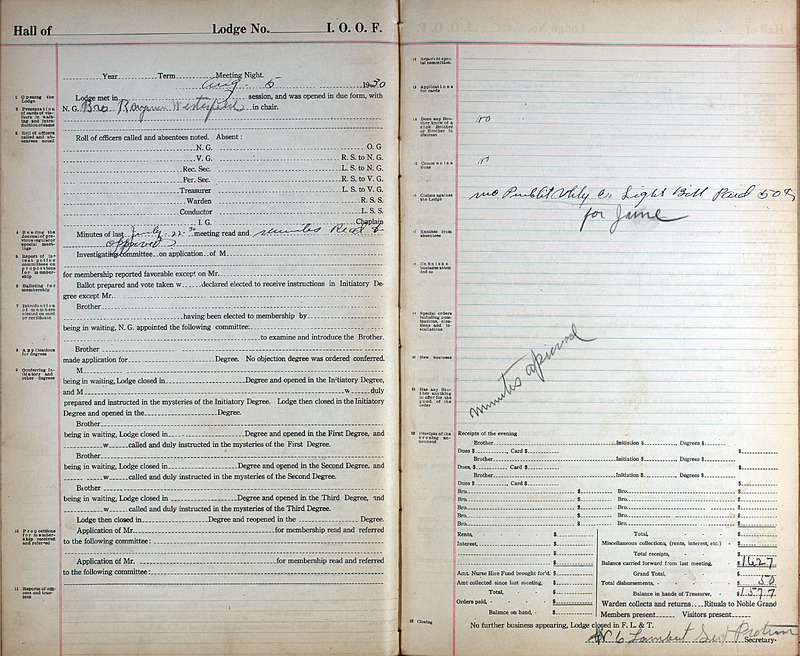 Hall of Lodge No. I. O. O. F.
Year Term Meeting Night.
Aug 5 1930
Lodge met in session, and was opened in due form, with
N. G. Bro in chair.
Roll of officers called and absentees noted. Absent:
N. G. O. G
V. G. R. S. to N. G.
Rec. Sec. L. S. to N. G.
Per. Sec. R. S. to V. G.
Treasurer L. S. to V. G.
Warden R. S. S.
Conductor L. S. S.
I. G. Chaplain
Minutes of last July 22 meeting read and minutes Read &
approved
Investigating committee on application of M
for membership reported favorable except on Mr.
Ballot prepared and vote taken w declared elected to receive instructions in Initiatory De-
gree except Mr.
Brother
having been elected to membership by
being in waiting, N. G. appointed the following committee:
to examine and introduce the Brother.
Brother
made application for Degree. No objection degree was ordered conferred.
M
being in waiting, Lodge closed in Degree and opened in the Initiatory Degree,
and M w duly
prepared and instructed in the mysteries of the Initiatory Degree. Lodge then closed in the Initiatory
Degree and opened in the Degree.
Brother
being in waiting, Lodge closed in Degree and opened in the First Degree, and
w called and duly instructed in the mysteries of the First Degree.
Brother
being in waiting, Lodge closed in Degree and opened in the Second Degree, and
w called and duly instructed in the mysteries of the Second Degree.
Brother
being in waiting, Lodge closed in Degree and opened in the Third Degree, and
w called and duly instructed in the mysteries of the Third Degree.
Lodge then closed in Degree and reopened in the Degree.
Application of Mr. for membership read and referred
to the following committee:
Application of Mr. for membership read and referred
to the following committee:
1 Opening the Lodge
2 Presentation of cards of visitors in waiting and introduction of same
3 Roll of officers called and absentees noted
4 Reading the Journal of previous regular or special meetings
5 Report of investigating committees on propositions for membership
6 Balloting for membership
7 Introduction of members elected on card or certificate
8 Applications for degrees
9 Conferring Initiatory and other degrees
10 Propositions for membership received and referred
11 Reports of officers and trustees
12 Report of special committees.
13 Applications for cards
Does any Brother know of a sick Brother or Brother in distress
no
Communications
n
16 Claims against the Lodge
Light Bill Paid 50¢
for June
17 Excuses from absentees
Unfinished business attended to
Special orders including nominations, elections and installations
New business
Has any Brother anything to offer for the good of the order
minutes approved
22 Receipts of the evening announced
Receipts of the evening
Brother Initiation $ Degrees $
Dues $ , Card $ $
Brother Initiation $ , Degrees $
Dues, $ , Card $ $
Brother Initiation $ , Degrees $
Dues $ , Card $ $
Bro. $ Bro. $
Bro. $ Bro. $
Bro. $ Bro. $
Bro. $ Bro. $
Rents, $ Total, $
Interest, $ Miscellaneous collections, (rents, interest, etc.) $
Total receipts, $
$ Balance carried forward from last meeting, $ 1627
Amt. Nurse Hire Fund brought for'd. $ Grand Total, $
Amt collected since last meeting, $ Total disbursements, $ 50
Total, $ Balance in hands of Treasurer, $ 1577
Orders paid, $ Warden collects and returns Rituals to Noble Grand
Balance on hand, $ Members present Visitors present
23 Closing
No further business appearing, Lodge closed in F. L. & T.
Lambert Sec Protem
Secretary.